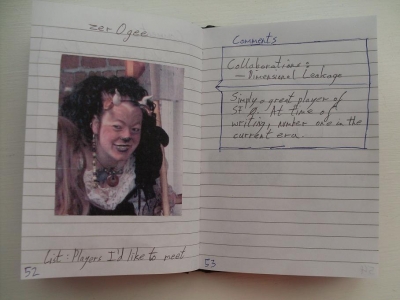 zerOgee
List: Players I'd like to meet
52
Comments
Collaborations:
— Dimensional Leakage
Simply a great player of
At time of
writing, number one in the
current era.
53